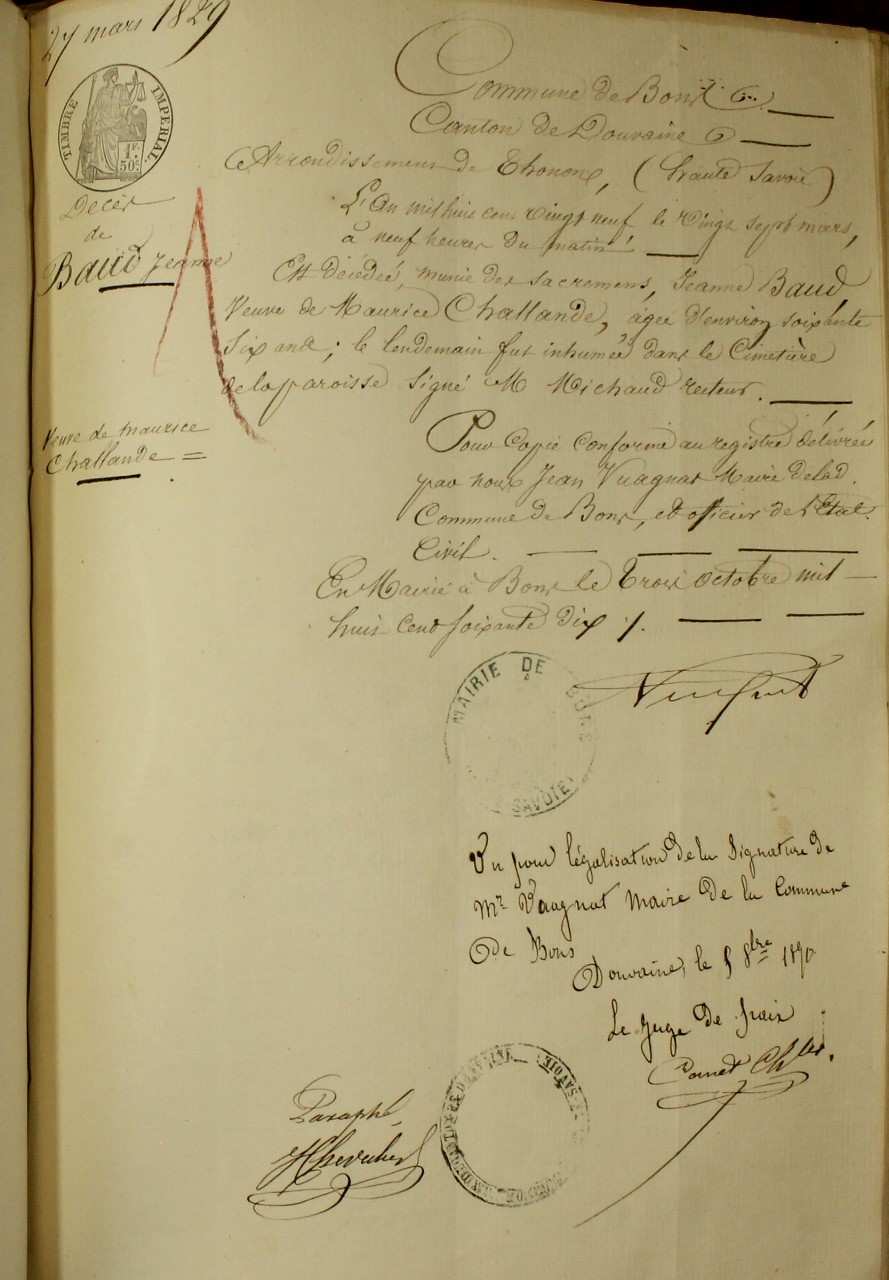 27 mars 1829
TIMBRE IMPERIAL.
1 F.
50 c.
Décès
de
Baud Jeanne
Veuve de maurice
Challande =
Commune de Bons
Canton de Douvaine
Arrondissement de Thonon, (haute Savoie)
L'An mil huit cent vingt neuf le vingt sept mars,
à neuf heures du matin
Est décédée, munie des sacremens, Jeanne Baud
Veuve de Maurice Challande, agée d'environ soixante
Six ans; le lendemain fut inhumée dans le Cimetière
de la paroisse Signé M Michaud recteur.
Pour Copie conforme au registre délivrée
par nous Jean Vuagnat Maire de lad.
Commune de Bons, et officier de l'Etat-
Civil.
En Mairie à Bons le trois octobre mil
huit cent soixante dix /.
MAIRIE DE BONS
SAVOIE
Vu pour légalisation de la Signature de
Mr. Vuagnat Maire de la Commune
de Bons
Douvaine, le 5 8bre 1870
Le Juge de paix
Paraphé